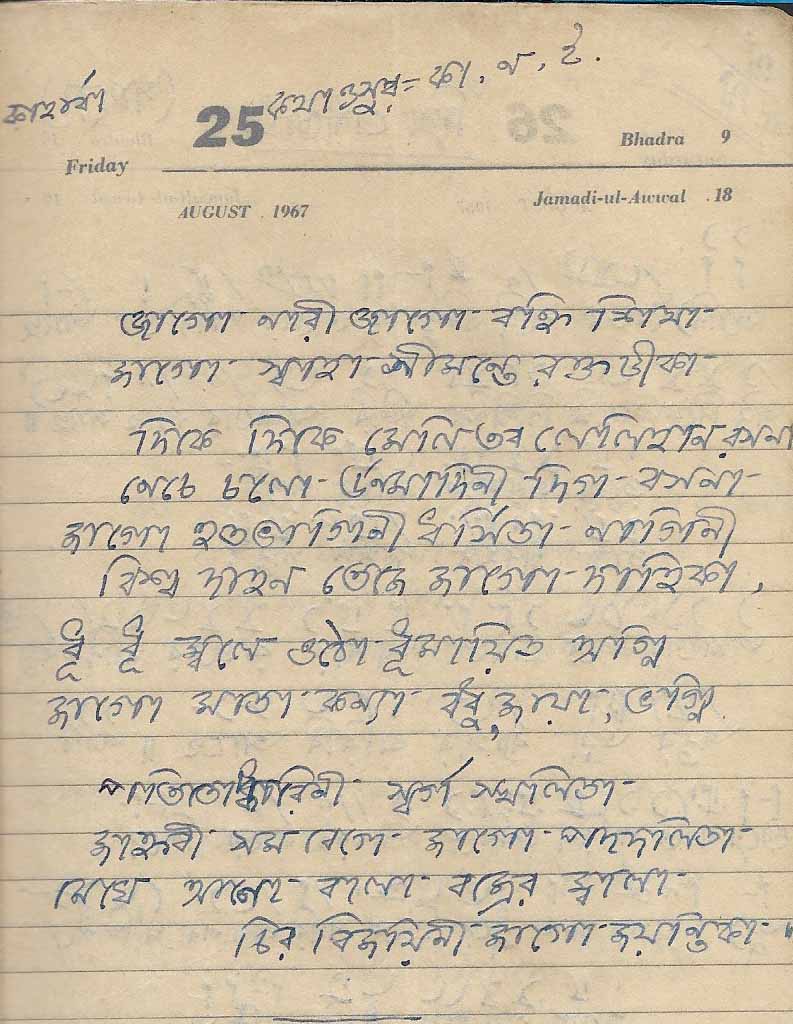 কাহার্বা
কথা ও সুর = কা. ন. ই.
25
Bhadra 9
Friday
AUGUST 1967
Jamadi-ul-Awwal 18
জাগো নারী জাগো বহ্নি শিখা
জাগো স্বাহা সীমন্তে রক্ত টীকা
দিকে দিকে মেলি তব লেলিহান রসনা
নেচে চলো উন্মাদিনী দিগ বসনা
জাগো হতভাগিনী ধর্ষিতা নাগিনী
বিশ্ব দাহন তেজে জাগো দাহিকা,
ধূ ধূ জ্বলে ওঠো ধূমায়িত অগ্নি
জাগো মাতা কন্যা বধু, জায়া, ভগ্নি
পতিতোদ্ধারিনী স্বর্গ স্খলিতা
জাহ্নবী সম বেগে জাগো পদদলিতা
মেঘে আনো বালা বজ্রের জ্বালা
চির বিজয়িনী জাগো জয়ন্তিকা "